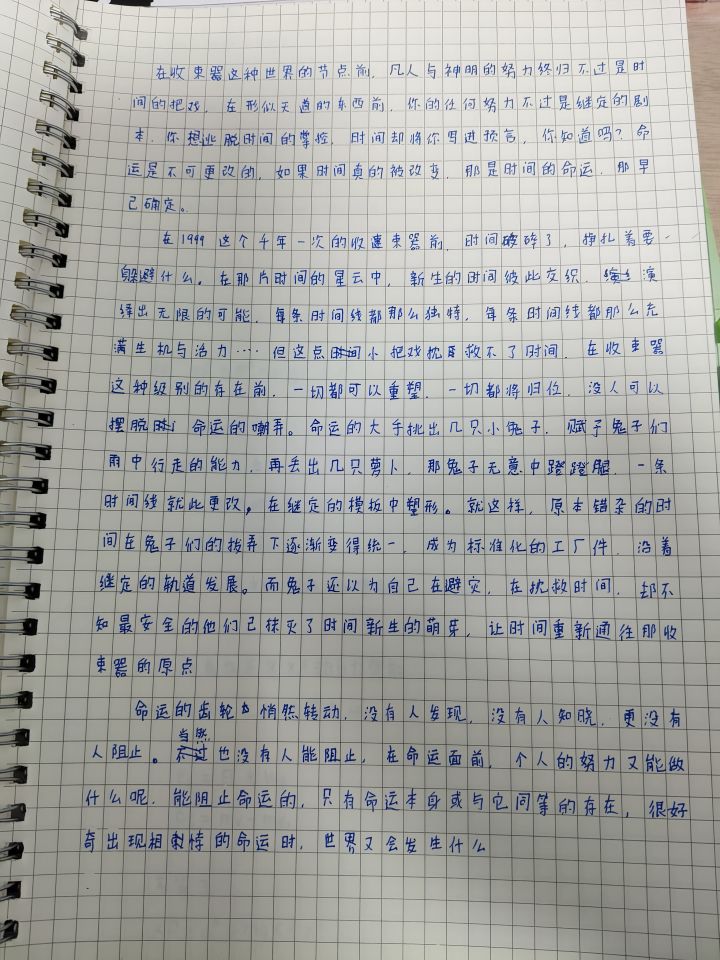 在收束器这种世界的节点前，凡人与神明的努力终归不过是时
间的把戏，在形似天道的东西前，你的任何努力不过是继定的剧
本，你想逃脱时间的掌控，时间却将你写进预言，你知道吗？命
运是不可更改的，如果时间真的被改变，那是时间的命运，那早
已确定。
在1999这个千年一次的收束器前，时间破碎了，挣扎着要
躲避什么。在那片时间的星云中，新生的时间彼此交织，演
绎出无限的可能，每条时间线都那么独特，每条时间线都那么充
满生机与活力····但这点小把戏拯救不了时间，在收束器
这种级别的存在前，一切都可以重塑，一切都将归位，没人可以
摆脱命运的嘲弄。命运的大手挑出几只小兔子，赋予兔子们
雨中行走的能力，再丢出几只萝卜，那兔子无意中蹬蹬腿，一条
时间线就此更改，在继定的模板中塑形。就这样，原本错杂的时
间在兔子们的拨弄下逐渐变得统一，成为标准化的工厂件，沿着
继定的轨道发展。而兔子还以为自己在避灾，在拯救时间，却不
知最安全的他们已抹灭了时间新生的萌芽，让时间重新通往那收
束器的原点
命运的齿轮悄然转动，没有人发现，没有人知晓，更没有
人阻止。当然也没有人能阻止，在命运面前，个人的努力又能做
什么呢，能阻止命运的，只有命运本身或与它同等的存在，很好
奇出现相悖的命运时，世界又会发生什么